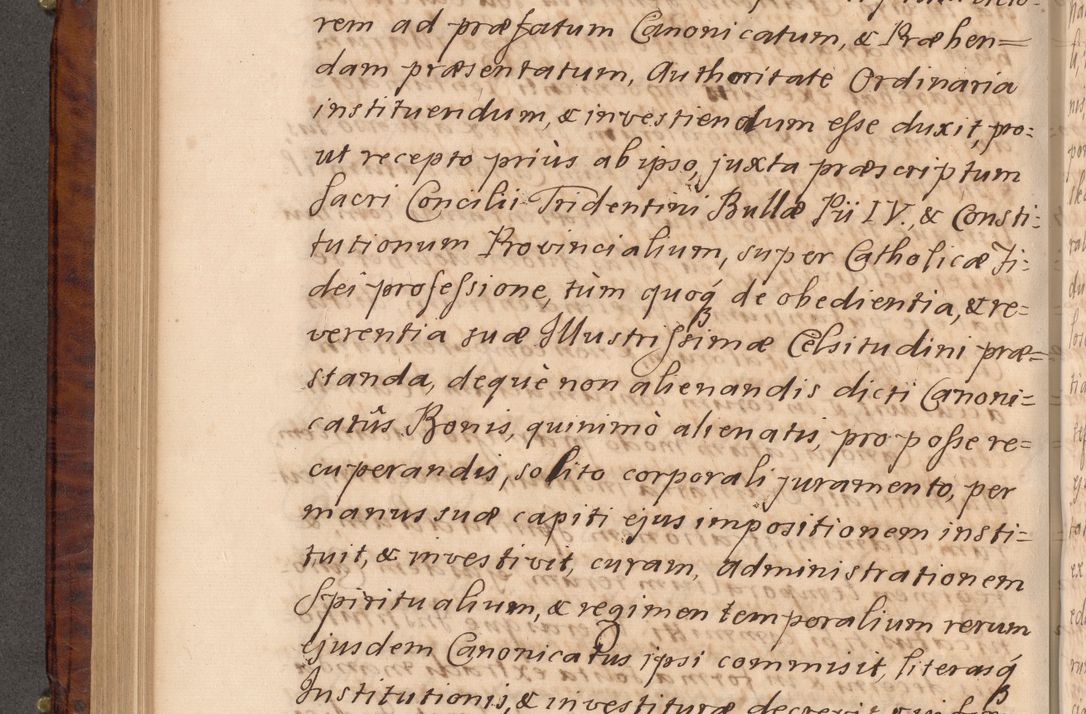 rem ad præfatum Canonicatum, & Præben=
dam præsentatum, Authoritate Ordinaria
instituendum, & investiendum esse duxit, pro=
ut recepto priùs ab ipso, juxta præscriptum
Sacri Concilii Tridentini Bullæ Pii IV., & Consti=
tutionum Provincialium, super Catholicæ Fi=
dei professione, tùm quoq́ de obedientia, & re=
verentia suæ Illustrissimæ Celsitudini præ=
standa, dequè non alienandis dicti Canoni=
catûs Bonis, quinimò alienatis, pro posse re=
cuperandis, solito corporali juramento, per
manus suæ capiti ejus impositionem insti=
tuit, & investivit, curam, administrationem
Spiritualium, & regimen temporalium rerum
ejusdem Canonicatus ipsi commisit, literasq́
Institutionis, & investituræ decrevit